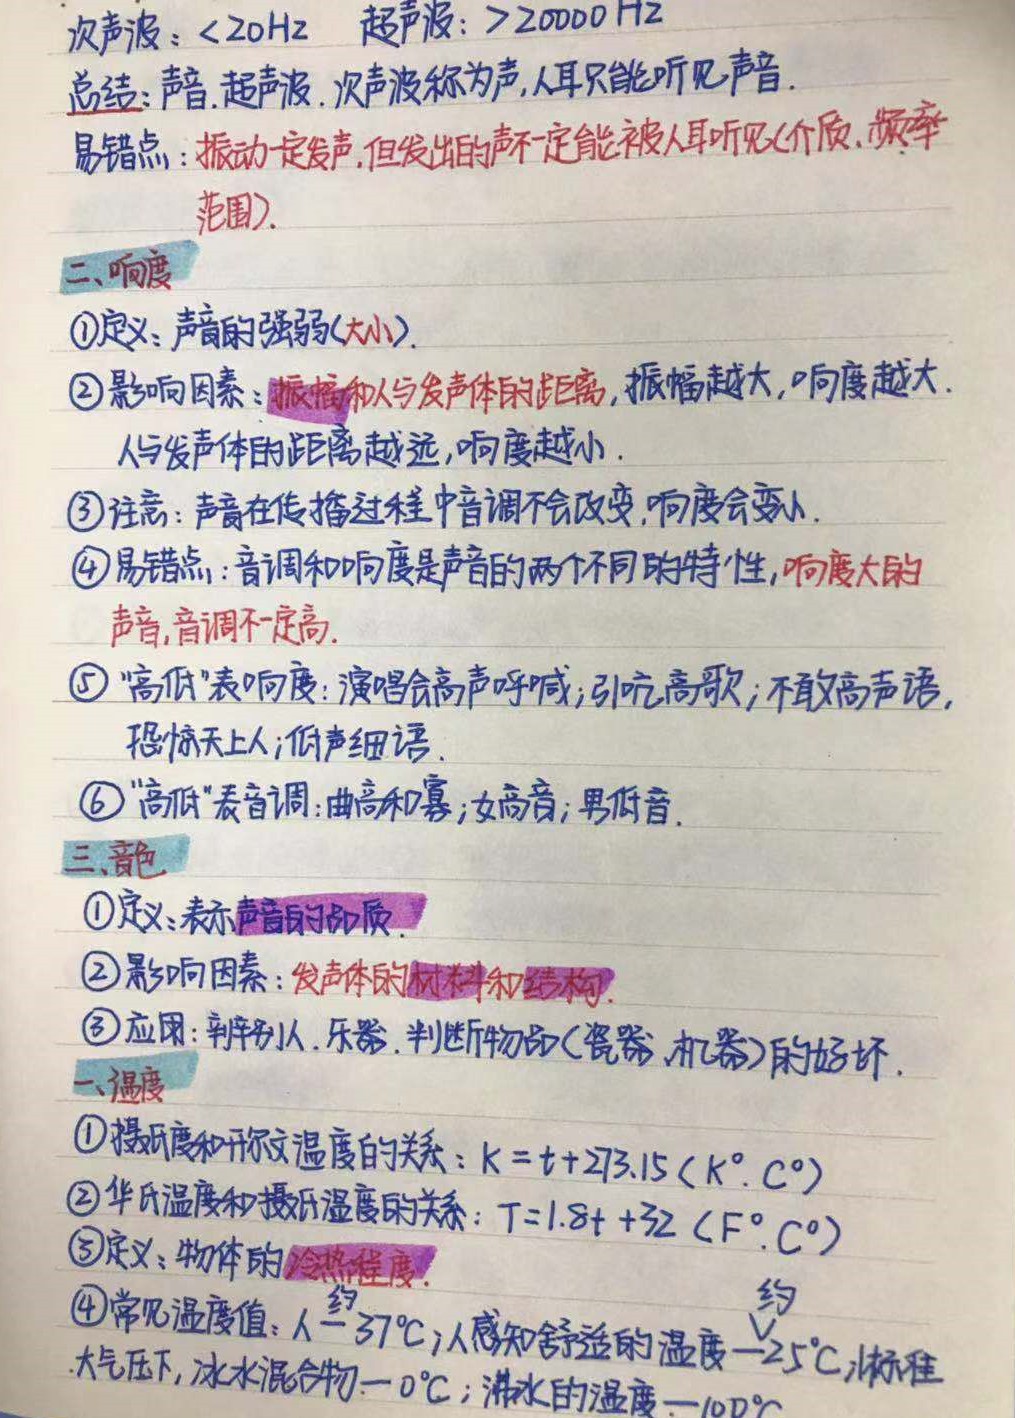 次声波：<20Hz 超声波：>20000Hz
总结：声音.超声波.次声波称为声,人耳只能听见声音.
易错点：振动一定发声,但发出的声不一定能被人耳听见(介质、频率
范围).
二、响度
①定义：声音的强弱(大小).
②影响因素：振幅和人与发声体的距离,振幅越大,响度越大.
人与发声体的距离越远,响度越小.
③注意：声音在传播过程中音调不会改变,响度会变小.
④易错点：音调和响度是声音的两个不同的特性,响度大的
声音,音调不一定高.
⑤“高低”表响度：演唱会高声呼喊;引吭高歌;不敢高声语,
恐惊天上人;低声细语.
⑥“高低”表音调：曲高和寡;女高音;男低音.
三、音色
①定义：表示声音的品质.
②影响因素：发声体的材料和结构.
③应用：辨别人.乐器.判断物品(瓷器、机器)的好坏.
一、温度
①摄氏度和开尔文温度的关系：K=t+273.15(K°.C°)
②华氏温度和摄氏温度的关系：T=1.8t+32(F°.C°)
③定义：物体的冷热程度.
④常见温度值：人一约37℃;人感知舒适的温度一约25℃;标准
大气压下,冰水混合物一0℃;沸水的温度一100℃